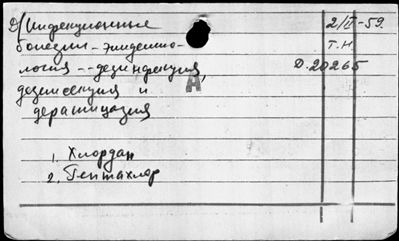 Д) Инфекционные 2/II-59.
болезни - эпидемио- Т.Н
логия -- дезинфекция, D.20265
дезинсекция и А
дератизация
1. Хлордан
2. Гептахлор